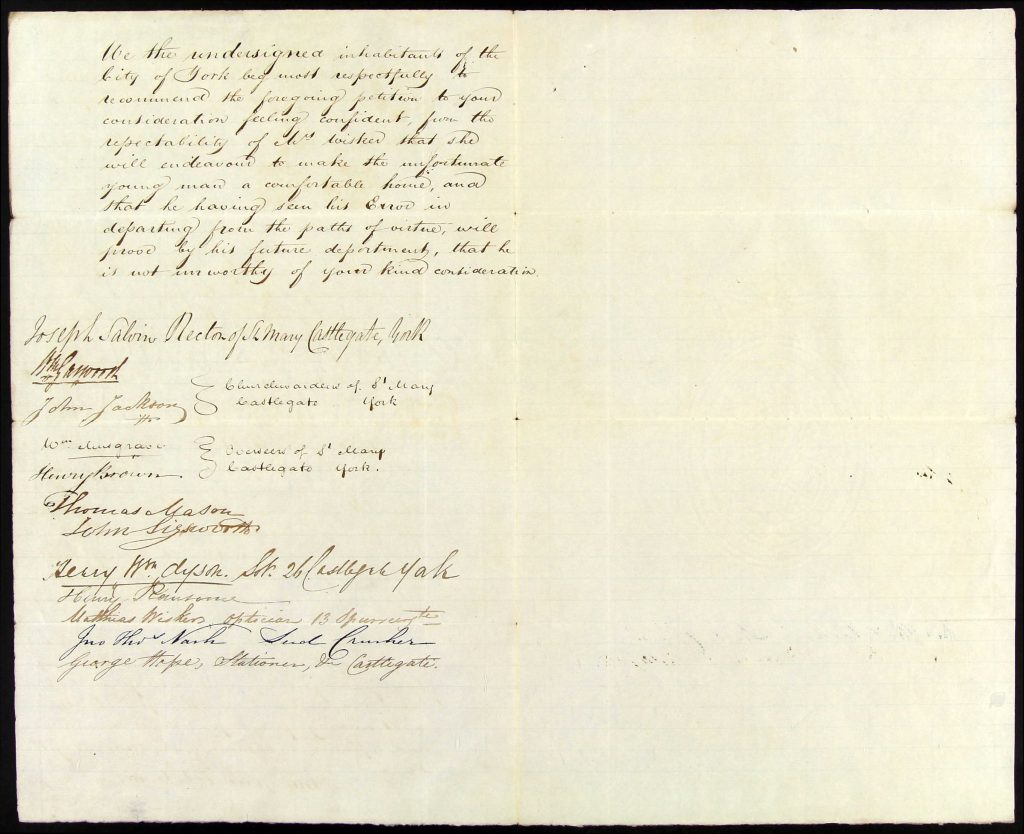 We the undersigned inhabitants of the
City of York beg most respectfully to
recommend the foregoing petition to your
consideration feeling confident, from the
repectability of Mrs Wisker that she
will endeavour to make the unfortunate
young man a comfortable home, and
that he having seen his Error in
departing from the paths of virtue, will
prove by his future deportment, that he
is not unworthy of your kind consideration.
Joseph Salvin Rector of St Mary Castlegate, York
John Jackson
Churchwardens of St Mary
Castlegate York
Wm Musgrave
Henry Brown
Overseers of St Mary
Castlegate York.
Thomas Mason
John Sigsworth
Wm Dyson. Sol. 26 Castlegate York
Henry Ransome
Matthias Wisker optician 13 Spurriergte
Jno Thos Nash Seed Crusher
George Hope, Stationer, &c Castlegate.